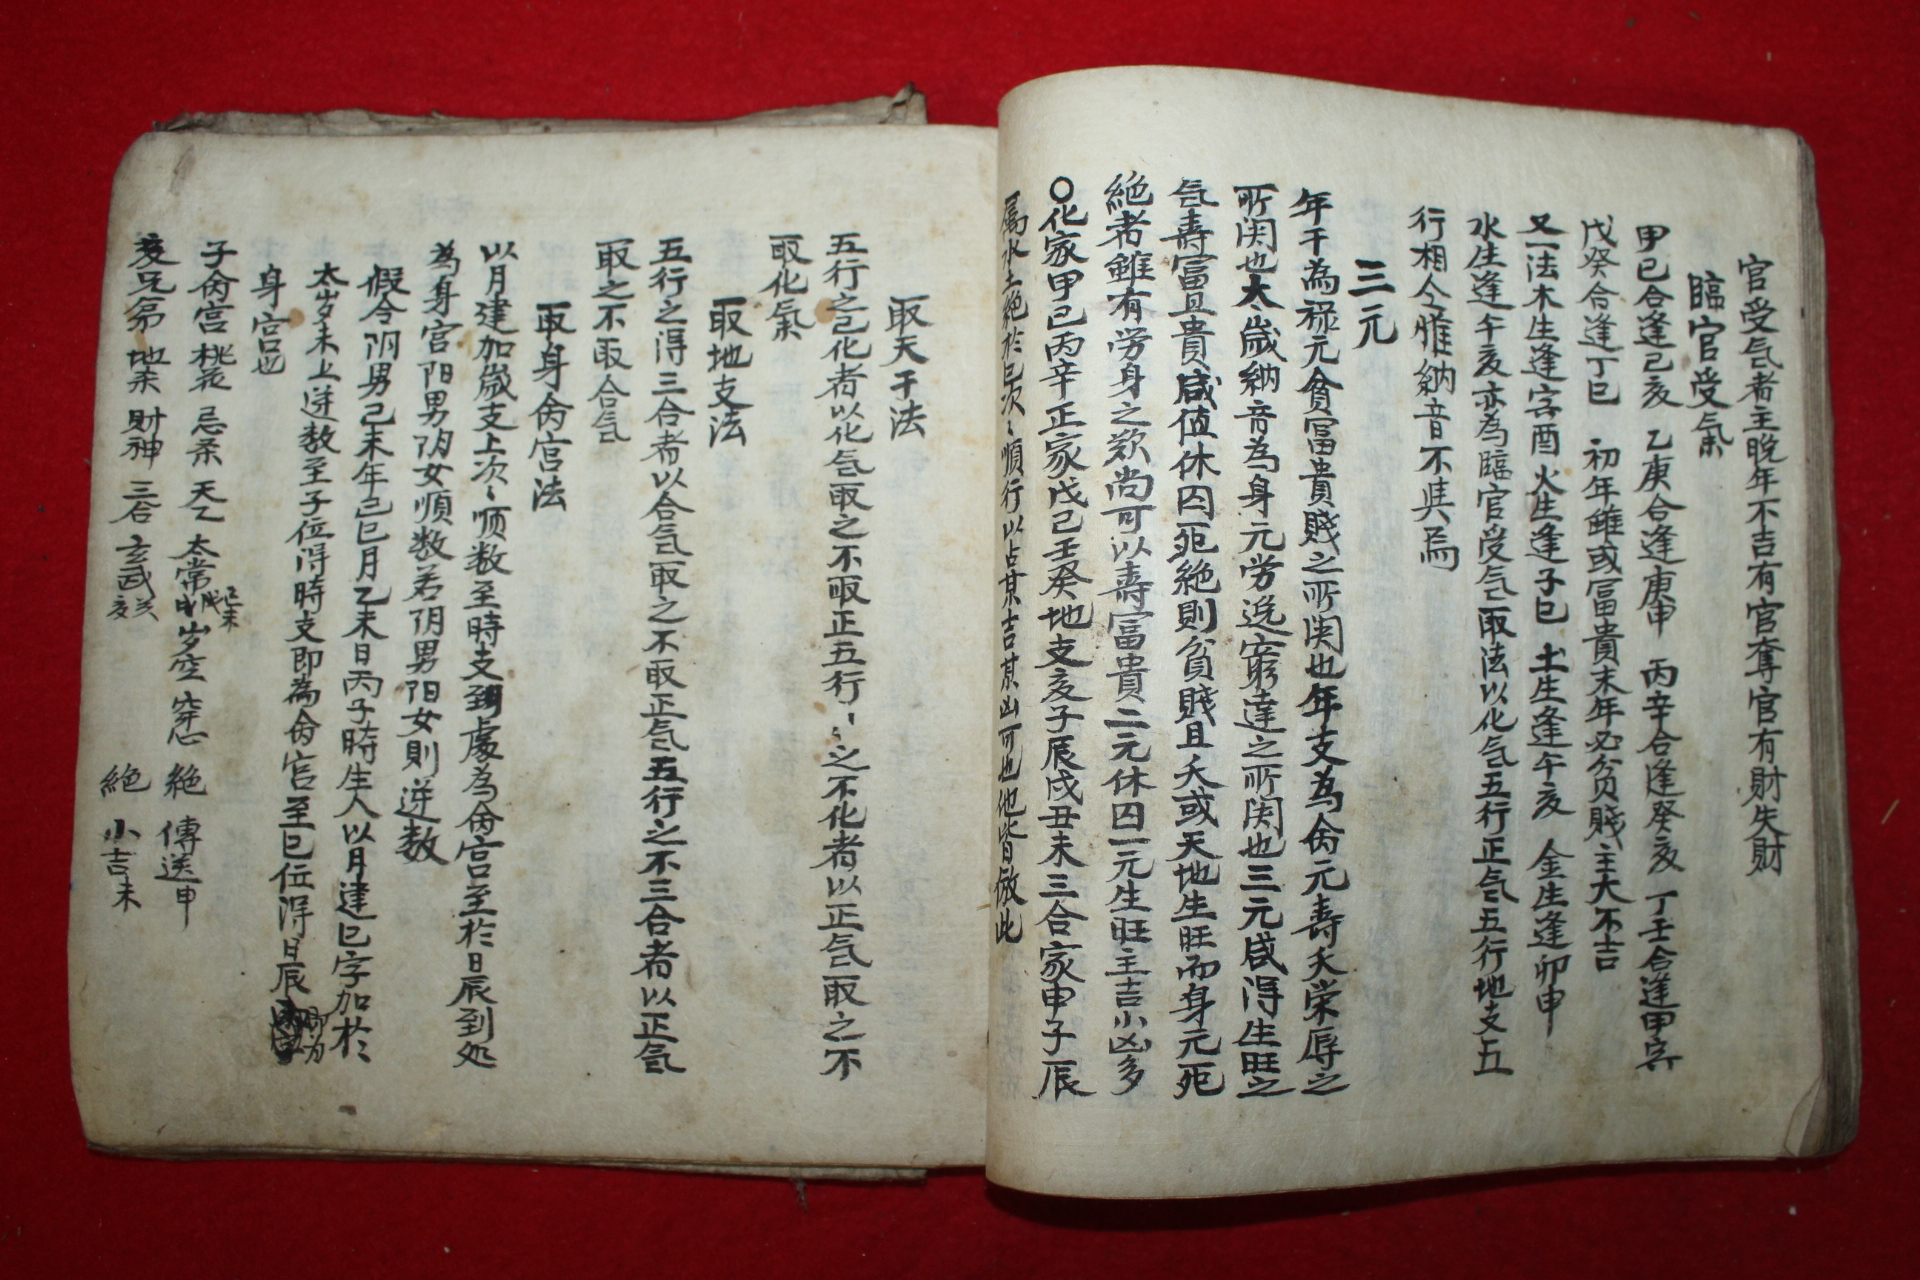 官受气者主晩年不吉有官奪官有財失財
臨官受氣
甲己合逢己亥 乙庚合逢庚申 丙辛合逢癸亥 丁壬合逢甲寅
戊癸合逢丁巳 初年雖或冨貴末年必贫賤主大不吉
又一法木生逢寅酉 火生逢子巳 土生逢午亥 金生逢卯申
水生逢午亥亦為臨官受气取法以化气五行正气五行地支五
行相合惟納音不具焉
三元
年干為禄元貪富貴賤之所関也年支為命元壽夭栄辱之
所関也大歲納音為身元労逸窮達之所関也三元咸得生旺之
气壽冨且貴咸值休囚死絶則贫賤且夭或天地生旺而身元死
絶者雖有労身之欵尚可以壽冨貴二元休囚一元生旺主吉小凶多
○化家甲己丙辛正家戊己壬癸地支亥子辰戌丑未三合家申子辰
属水土絶於巳次〻順行以占某吉某凶可也他皆倣此
取天干法
五行之己化者以化气取之不取正五行〻〻之不化者以正气取之不
取化氣
取地支法
五行之得三合者以合气取之不取正气五行之不三合者以正气
取之不取合气
取身命宮法
以月建加歲支上次〻順数至時支到處為命宮至於日辰到処
為身宮阳男阴女順数若阴男阳女則逆数
假令阴男己未年己巳月乙未日丙子時生人以月建巳字加於
太岁未上逆数至子位得時支即為命宮至巳位得日辰 即为
身宮也
子命宮 桃花 忌杀 天乙 太常 己未 岁空 穿心 絶 傳送申
亥兄弟 地杀 財神 三合 玄武 癸亥 絶 小吉未